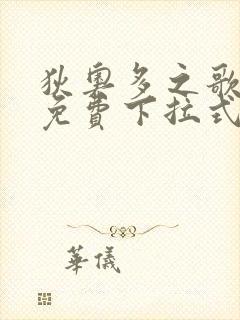 狄奧多之歌
免費下拉式
華儀